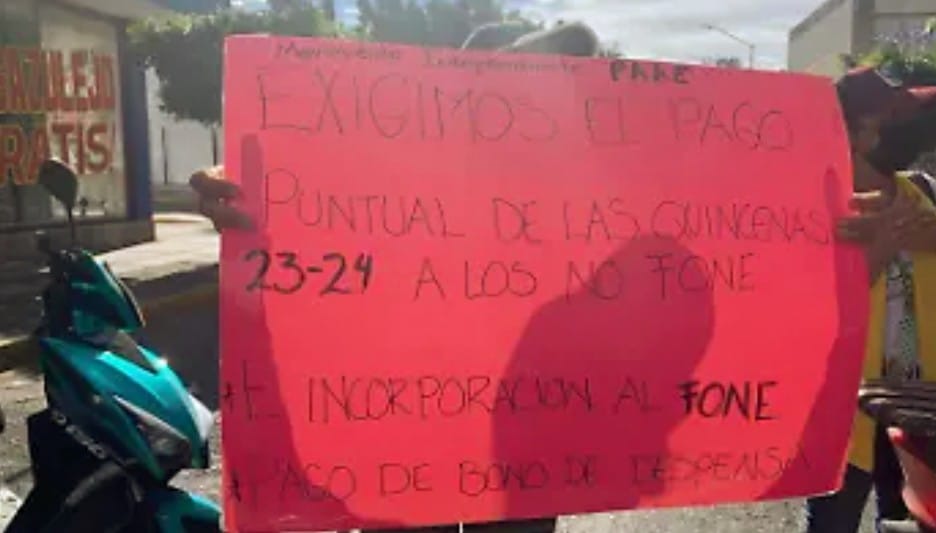 AZULEJO
GRATIS!
Movimiento Independiente
EXIGIMOS EL PAGO
PUNTUAL DE LAS QUINCENAS
23-24 A LOS NO FONE
+ E INCORPORACION AL FONE
+ PAGO DE BONO DE DESPENSA